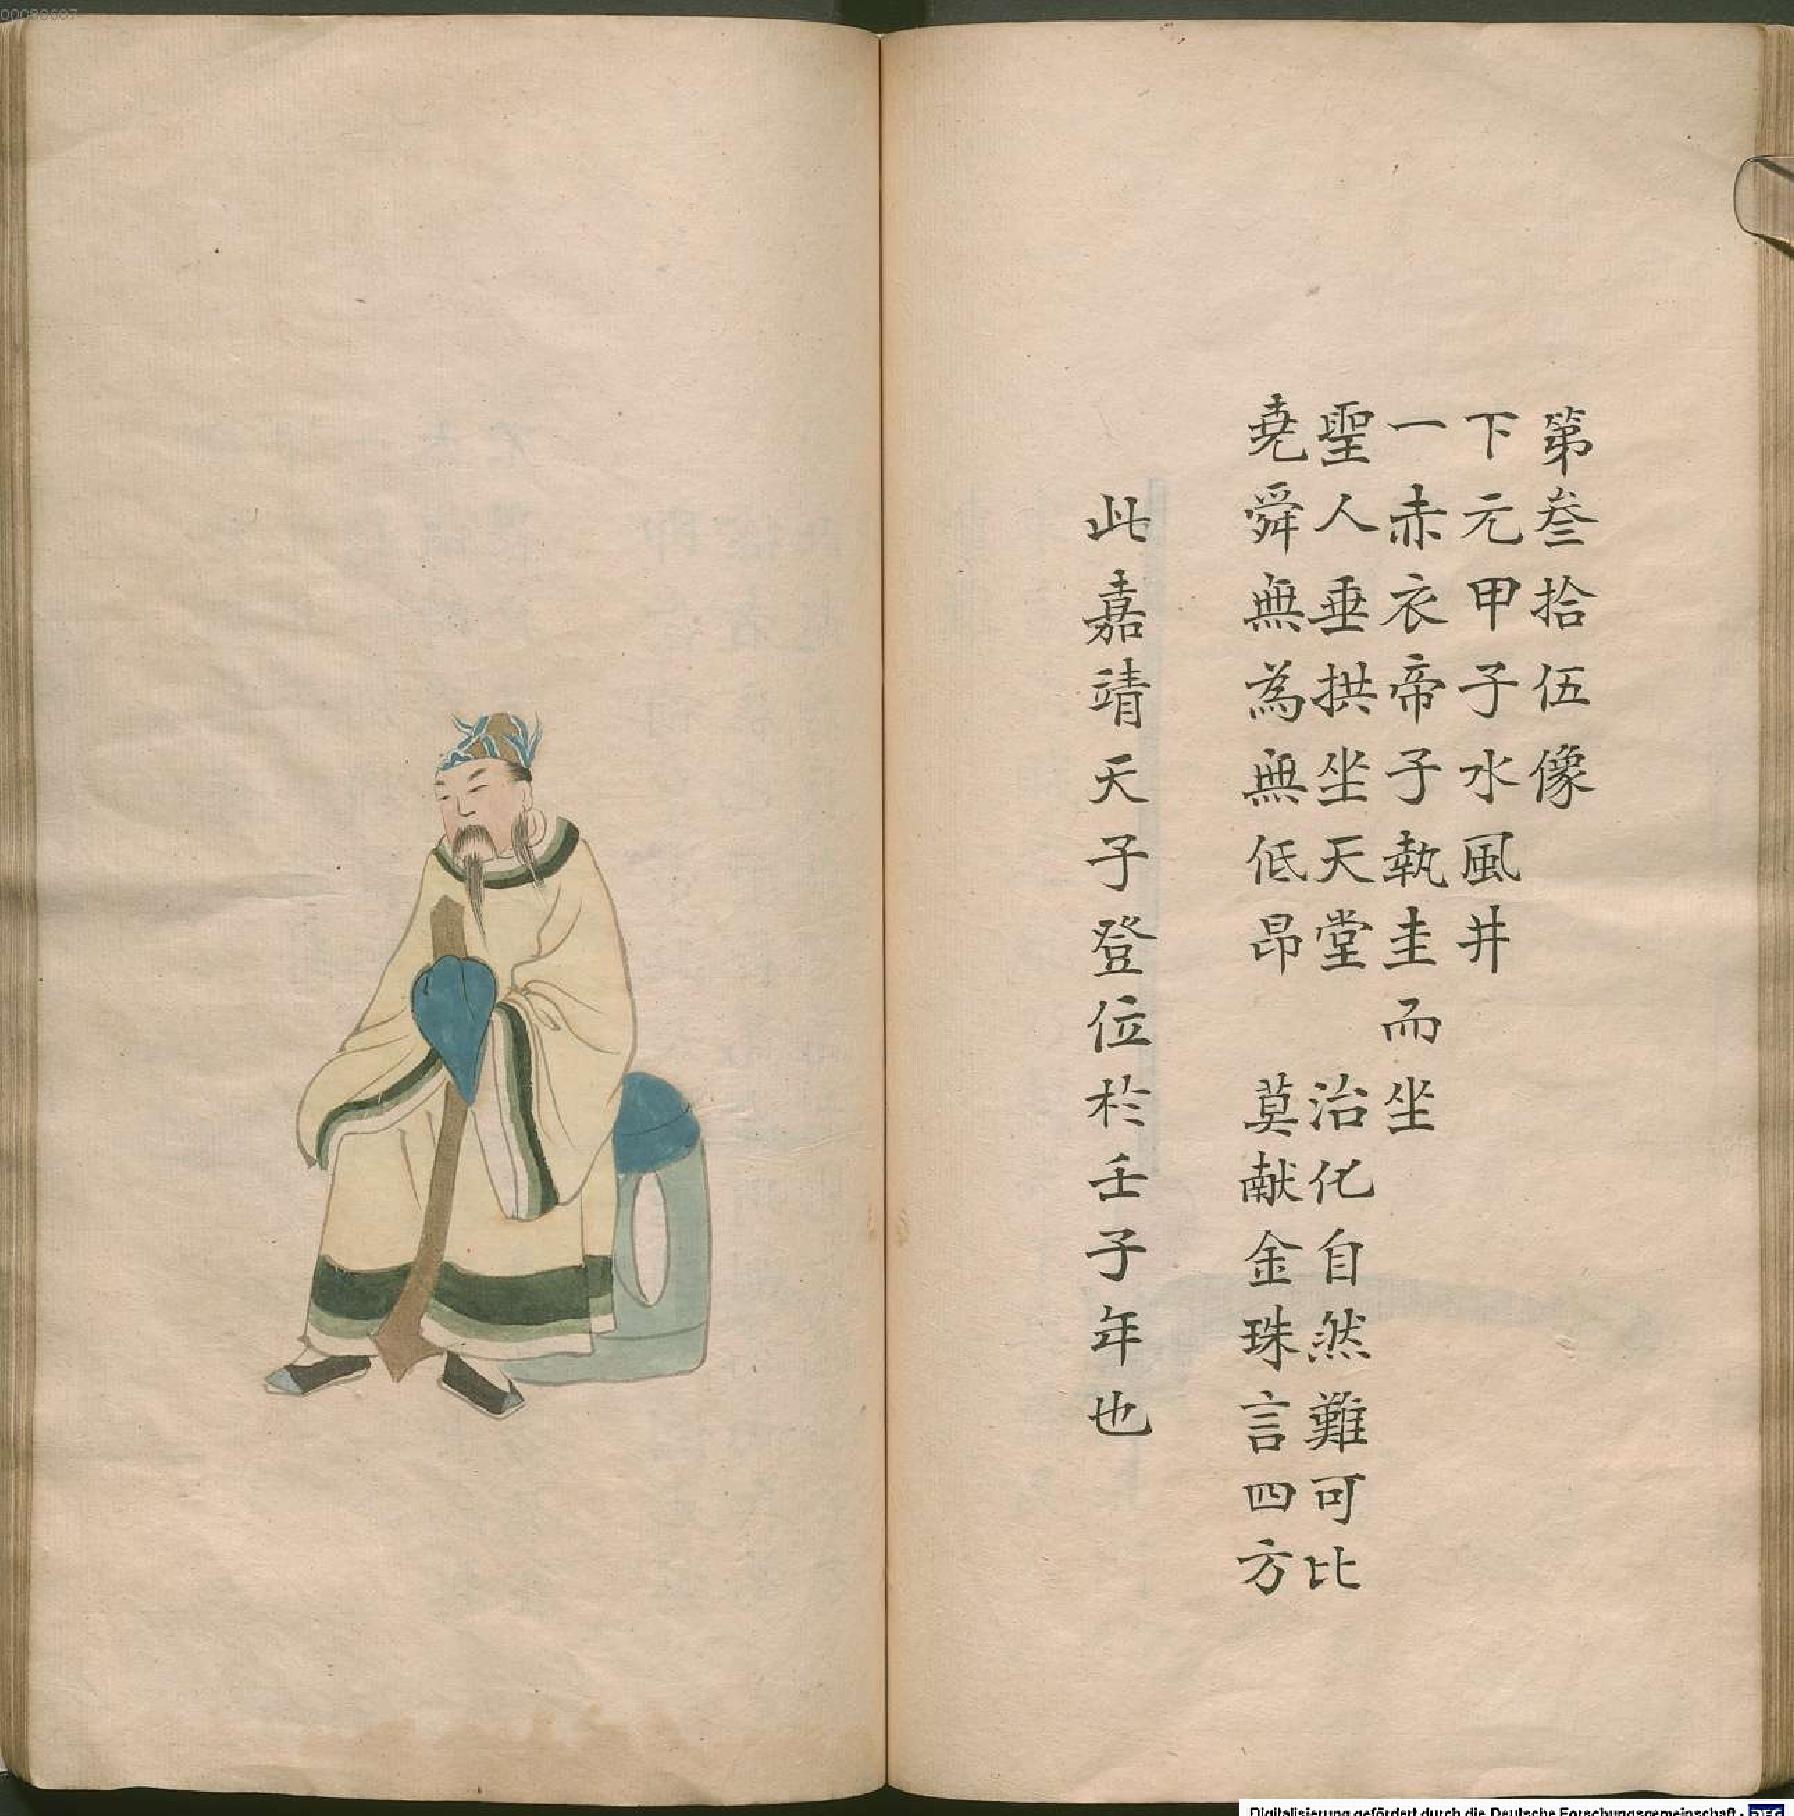 第叁拾伍像
下元甲子水風井
一赤衣帝子執圭而坐
聖人垂拱坐天堂　治化自然難可比
堯舜無為無低昂　莫献金珠言四方
此嘉靖天子登位於壬子年也
Digitalisierung gefördert durch die Deutsche Forschungsgemeinschaft - DFG